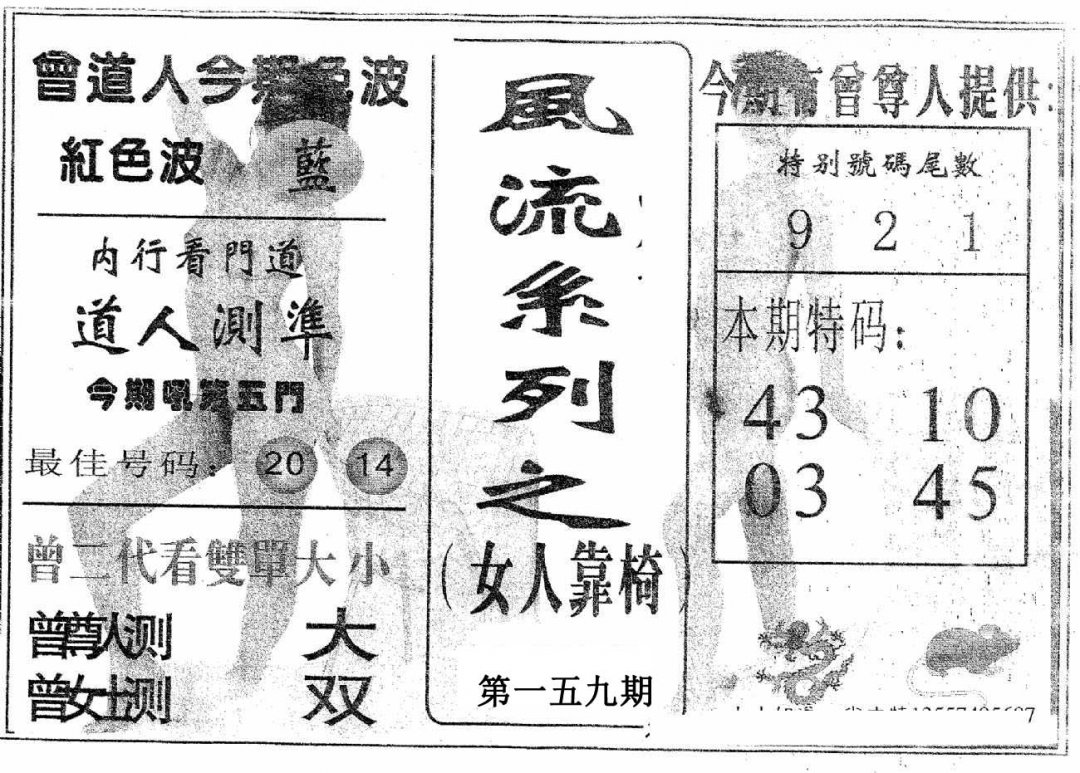 曾道人今期色波
紅色波 藍
内行看門道
道人測準
今期吼第五門
最佳号码: 20 14
曾二代看雙單大小
曾尊人测 大
曾女士测 双
風流系列之
(女人靠椅)
第一五九期
今期有曾尊人提供:
特别號碼尾數
9 2 1
本期特码:
43 10
03 45